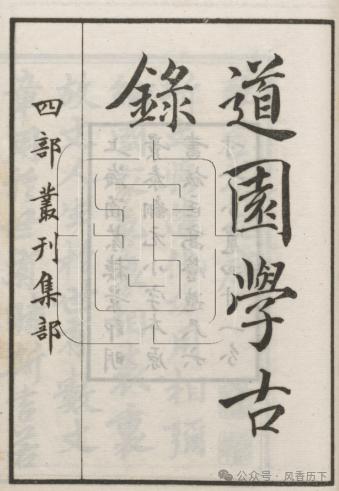 道園學古
錄
四部叢刊集部
公众号·风香历下